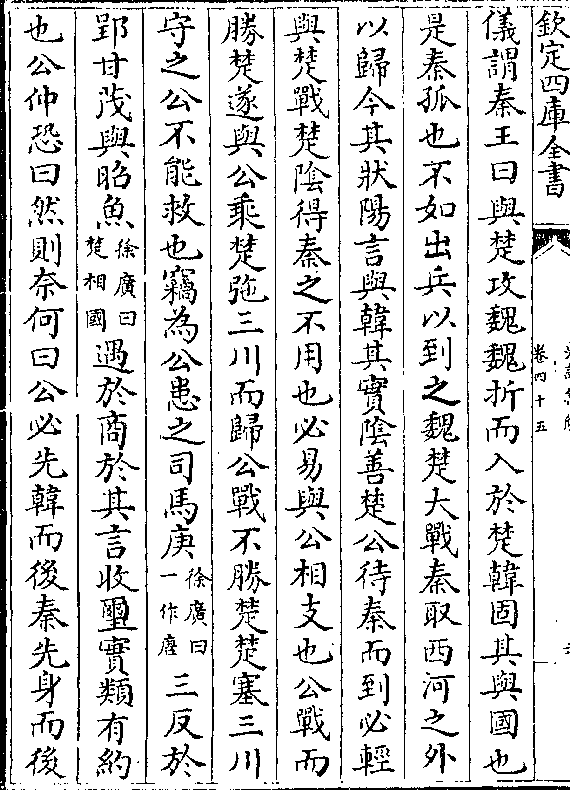 欽定四庫全書
卷四十五
儀謂秦王曰與楚攻魏魏折而入於楚韓固其與國也
是秦孤也不如出兵以到之魏楚大戰秦取西河之外
以歸今其狀陽言與韓其實陰善楚公待秦而到必輕
與楚戰楚陰得秦之不用也必易與公相支也公戰而
勝楚遂與公乘楚弛三川而歸公戰不勝楚楚塞三川
守之公不能救也竊為公患之司馬庚徐廣曰一作唐三反於
郢甘茂與昭魚徐廣曰楚相國遇於商於其言收璽實類有約
也公仲恐曰然則奈何曰公必先韓而後秦先身而後